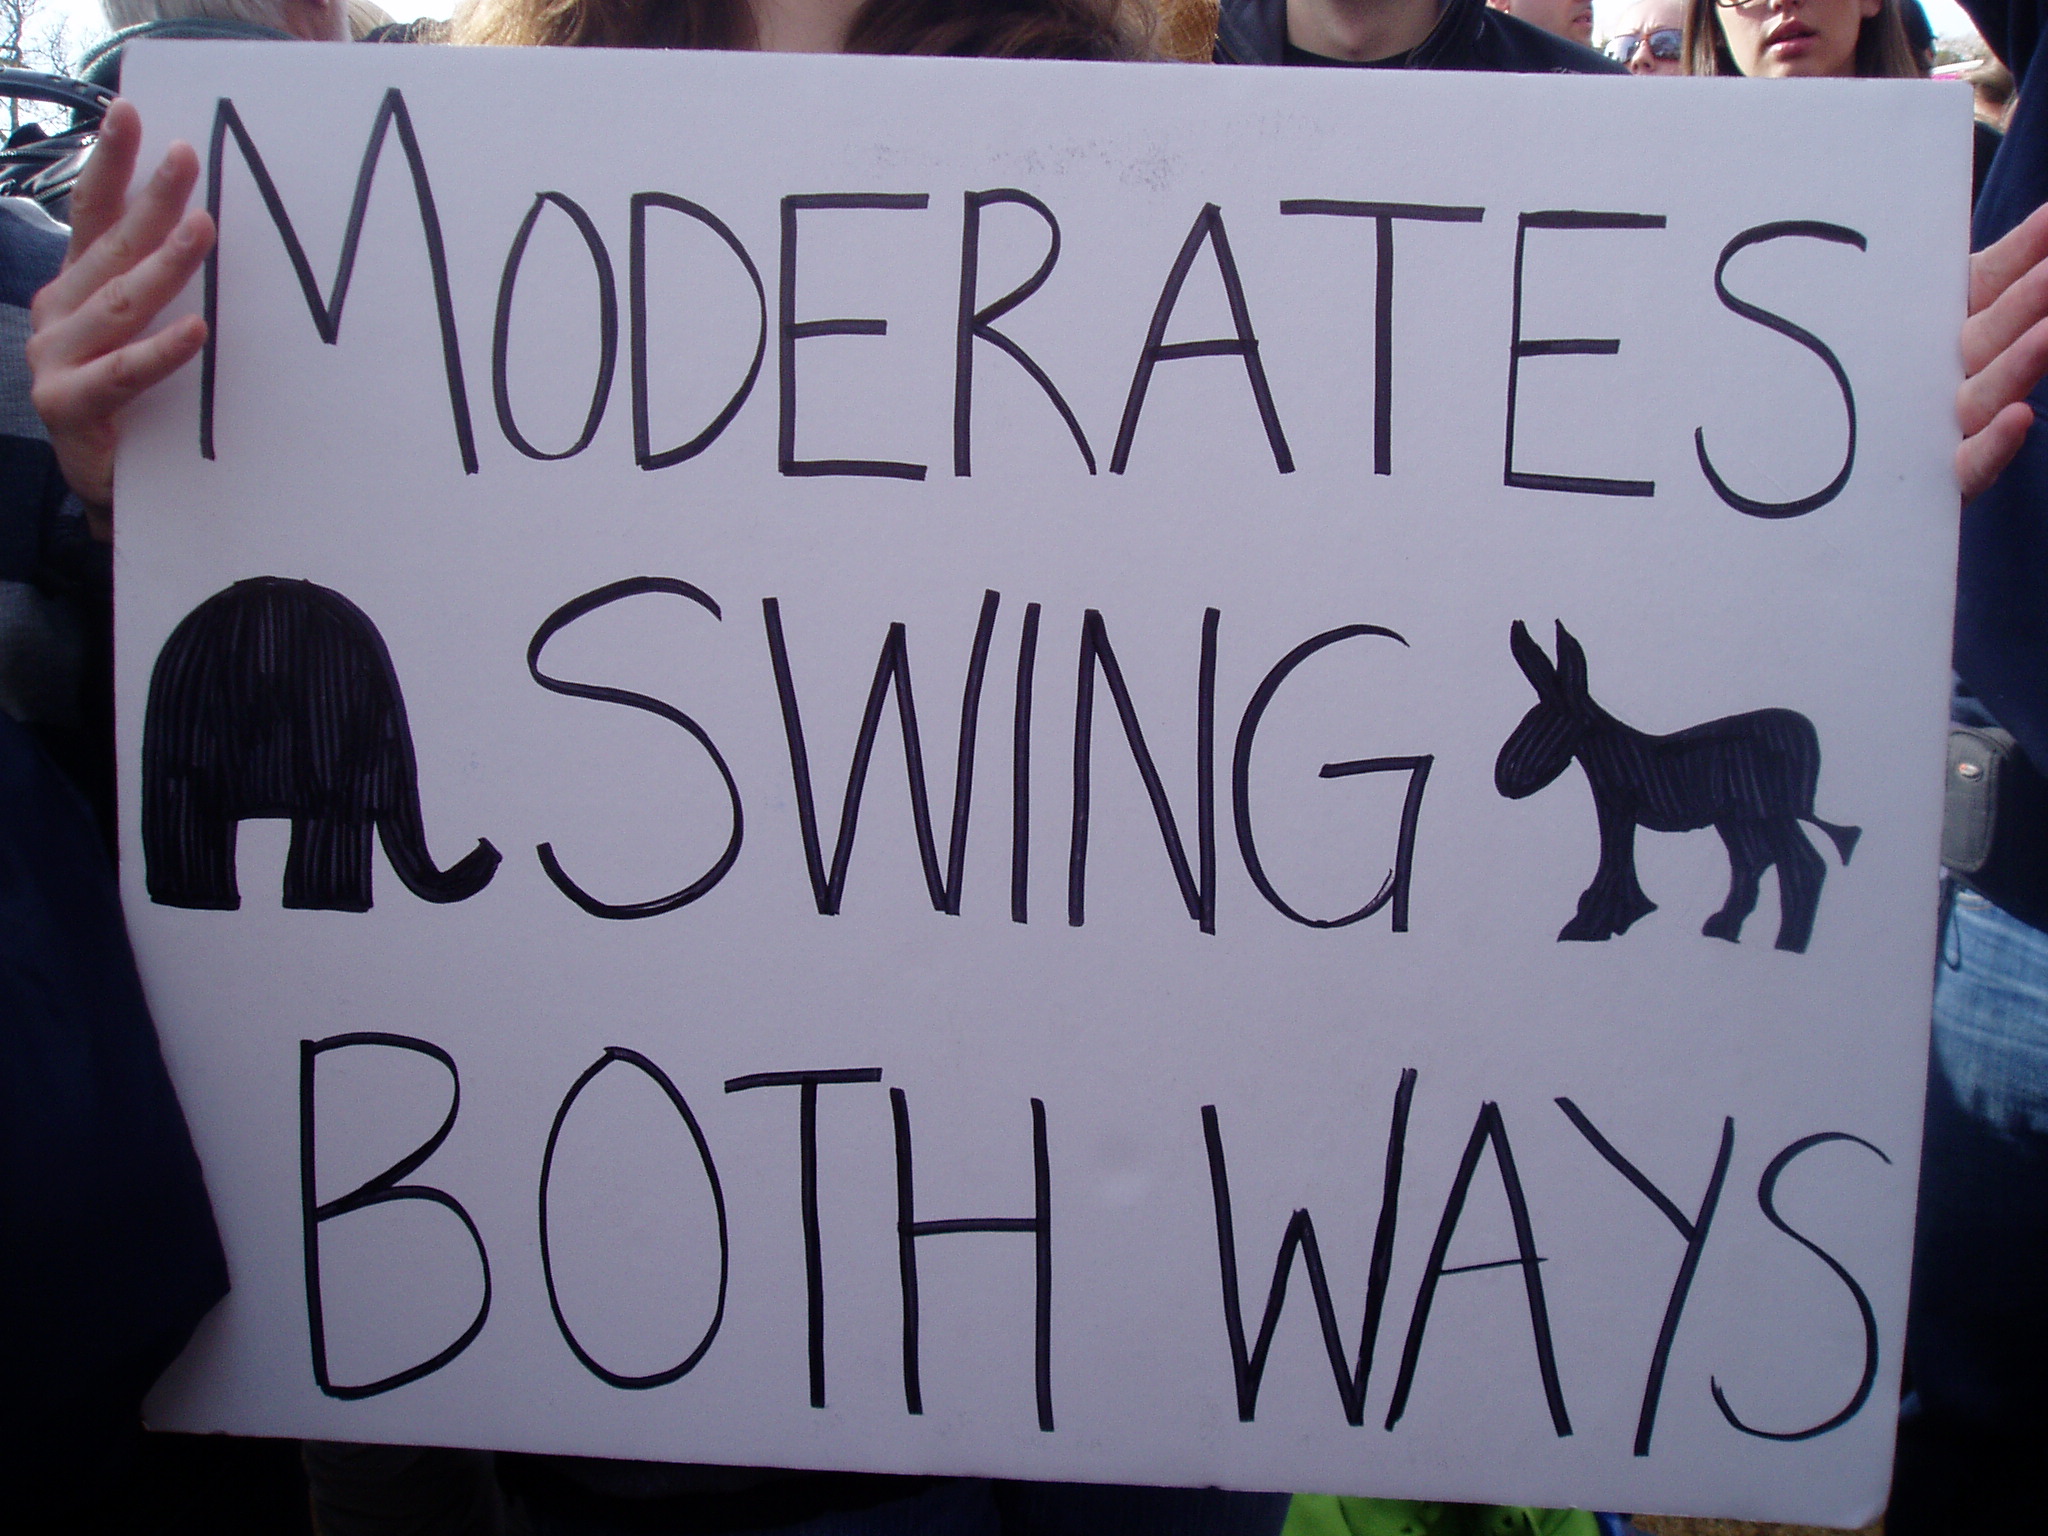 MODERATES
SWING
BOTH WAYS